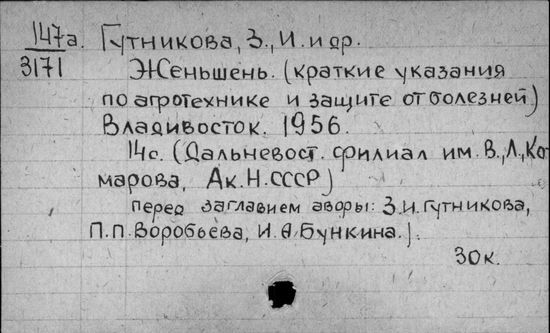 147а. Гутникова, З., И. и др.
3171
Женьшень. (краткие указания
по агротехнике и защите от болезней)
Владивосток. 1956.
14с. (Дальневост. филиал им. В., Л., Ко
марова, Ак. Н. СССР)
перед заглавием аворы: З. И. Гутникова,
П. П. Воробьева, И. А. Бункина.).
30к.